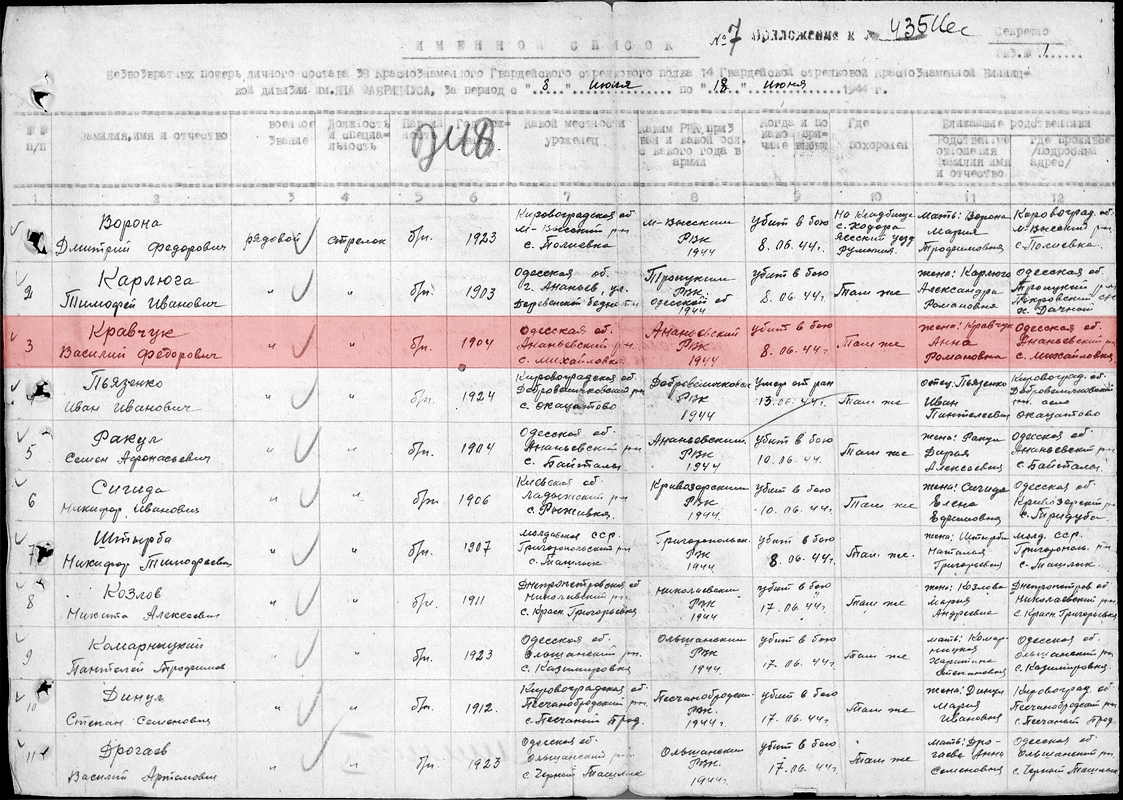 №7 Приложение к № 4356с
Секретно
экз. № 1
ИМЕННОЙ СПИСОК
безвозвратных потерь личного состава 38 Краснознаменного Гвардейского стрелкового полка 14 Гвардейской стрелковой Краснознаменной Винниц-
кой дивизии им. ЯНА ФАБРИЦИУСА, за период с "8" июня по "18" июня 1944 г.
№№ п/п
Фамилия, имя и отчество
Военное звание
Должность и специальность
Какой местности уроженец
Каким РВК призван и какой обл. с какого года в армии
Когда и по какой причине выбыл
Где похоронен
Ближайшие родственники
Родственные отношения фамилия имя и отчество
Где проживает /подробный адрес/
1 2 3 4 5 6 7 8 9 10 11 12
Ворона
Дмитрий Федорович
рядовой
стрелок
б/п.
1923
Кировоградской об.
М-Высский рн
М-Высским
РВК
1944
убит в бою
8.06.44г.
На кладбище
с. Ходора
Ясский уезд
Румыния.
мать: Ворона
Мария
Трофимовна
Кировоград. об.
М-Высский рн
2
Карлюга
Тимофей Иванович
"
"
б/п.
1903
Одесская об.
г. Ананьев, ул.
Деревенской бедноты
Троицким
РВК
Одесской об
1944
убит в бою
8.06.44г.
Там же
жена: Карлюга
Александра
Романовна
Одесская об.
Троицкий рн
Покровский с/с
х. Дачной
3
Кравчук
Василий Федорович
"
"
б/п.
1904
Одесская об.
Ананьевский рн.
с. Михайловка
Ананьевский
РВК
1944
убит в бою
8.06.44г.
Там же
жена: Кравчук
Анна
Романовна
Одесская об.
Ананьевский рн
с. Михайловка
4
Пьязенко
Иван Иванович
"
"
б/п.
1924
Кировоградская об.
Добровеличковский рн
с. Окацатово
Добровеличковск
РВК
1944
Умер от ран
13.06.44г.
Там же
отец: Пьязенко
Иван
Пантелеевич
Кировоградская об.
Добровеличковский
рн. село
Окацатово
5
Ракул
Семен Афонасьевич
"
"
б/п.
1904
Одесской об.
Ананьевский рн
с. Байтала
Ананьевским
РВК
1944
Убит в бою
10.06.44г.
Там же
жена: Ракул
Дарья
Алексеевна
Одесская об.
Ананьевский рн
с. Байталы
6
Сигида
Никифор Иванович
"
"
б/п.
1906
Киевская об.
Ладыжский рн
с. Рыживка
Кривозерским
РВК
1944
Убит в бою
10.06.44г.
Там же
жена: Сигида
Елена
Ефимовна
Одесской об.
Кривозерский рн
7
Штырба
Никифор Тимофеевич
"
"
б/п.
1907
Молдавск ССР.
Григориопольский рн
с. Ташлык
Григориопольск.
РВК
1944
Убит в бою
8.06.44г.
Там же.
жена: Штырба
Наталия
Григорьевна
Молд. ССР.
Григориополь. рн
с. Ташлык
8
Козлов
Никита Алексеевич
"
"
б/п.
1911
Днепропетровская об
Николаевский рн
с. Красн Григорьевка
Николаевским
РВК
1944
Убит в бою
17.06.44г.
Там же
жена: Козлова
Мария
Андреевна
Днепропетров. об
Николаевский рн.
с. Красн Григорьевка
9
Комарницкий
Пантелей Трофимов
"
"
б/п.
1923
Одесская об.
Ольшанский рн.
с. Казимировка
Ольшанским
РВК
1944
Убит в бою
17.06.44г.
Там же
мать: Комар-
ницкая
Харитина
Степановна
Одесской об.
Ольшанский рн
с. Казимировка
10
Динул
Степан Семенович
"
"
б/п.
1912.
Кировоградской об.
Песчанобродский рн.
с. Песчаный Брод.
Песчанобродски
РВК.
1944г.
Убит в бою
17.06.44г.
Там же
жена: Динул
Мария
Ивановна
Кировоград. об
Песчанобродский рн
с. Песчаный Брод.
11
Дрогаев
Василий Артамович
"
"
б/п.
1923
Одесской об.
Ольшанский рн
с. Черный Ташлык
Ольшанским
РВК.
1944г.
Убит в бою
17.06.44г.
Там же
мать: Дро-
гаева Анна
Семеновна
Одесской об.
Ольшанский рн
с. Черный Ташлык